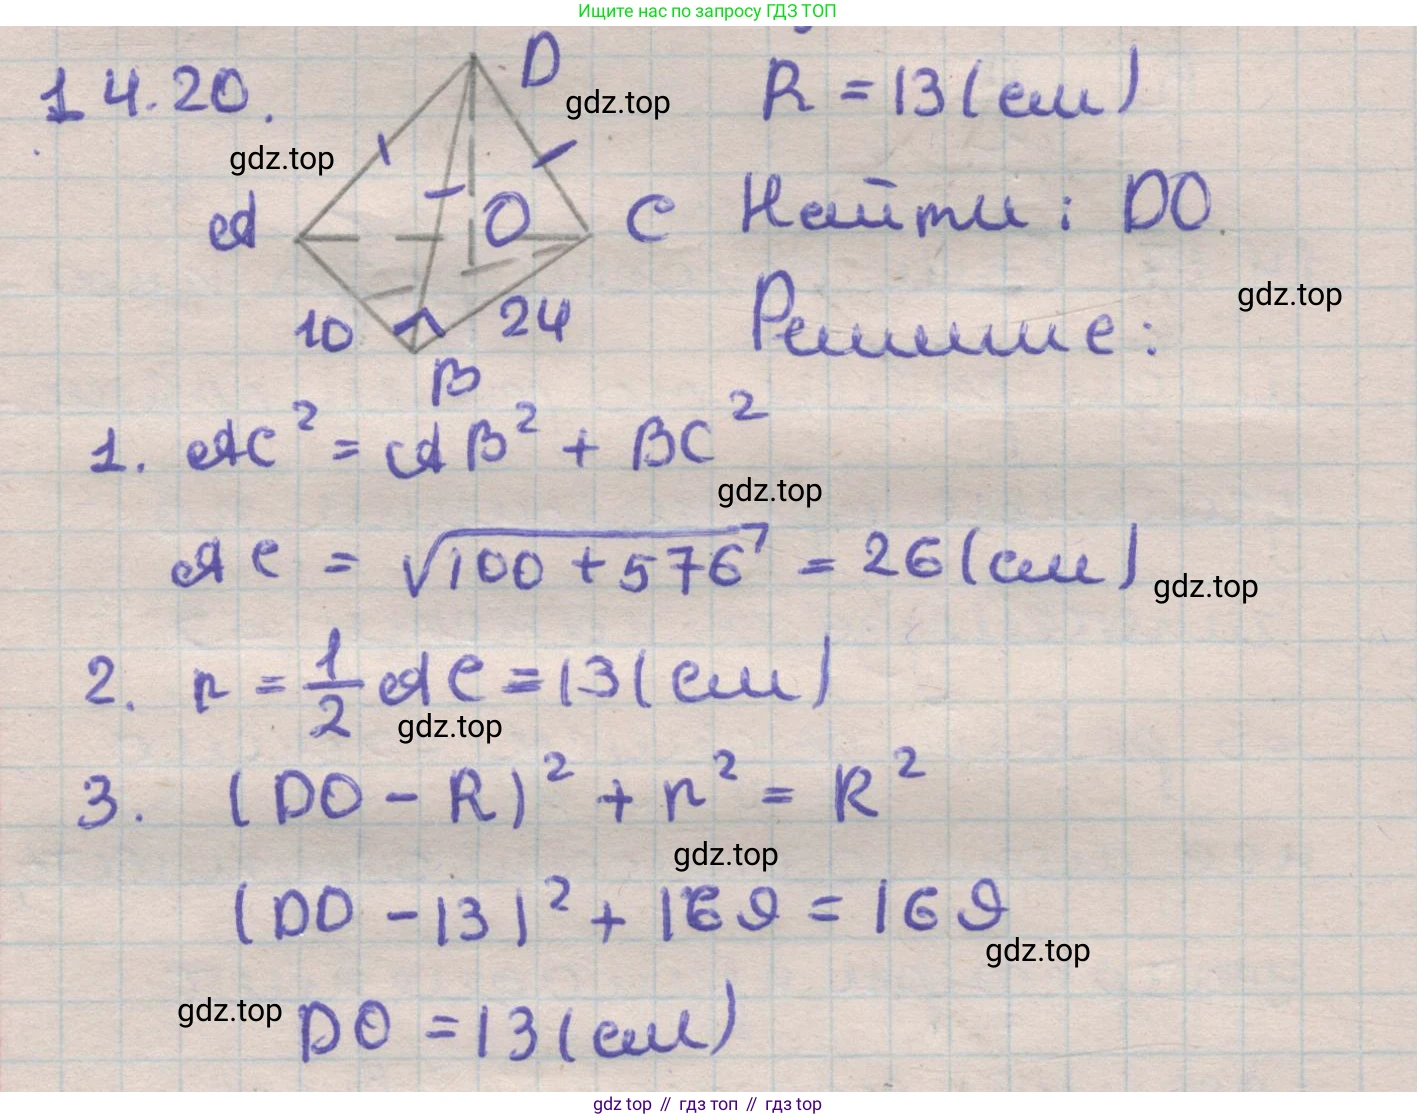 Ищите нас по запросу ГДЗ ТОП
14.20.
D
R = 13 (см)
gdz.top
gdz.top
A
O
C
Найти: DO
gdz.top
10
24
Решение:
B
1. AC² = AB² + BC²
gdz.top
AC = √100 + 576 = 26 (см)
gdz.top
2. r = 1/2 AC = 13 (см)
gdz.top
3. (DO - R)² + r² = R²
gdz.top
(DO - 13)² + 169 = 169
gdz.top
gdz.top
DO = 13 (см)
gdz top // гдз топ // gdz top